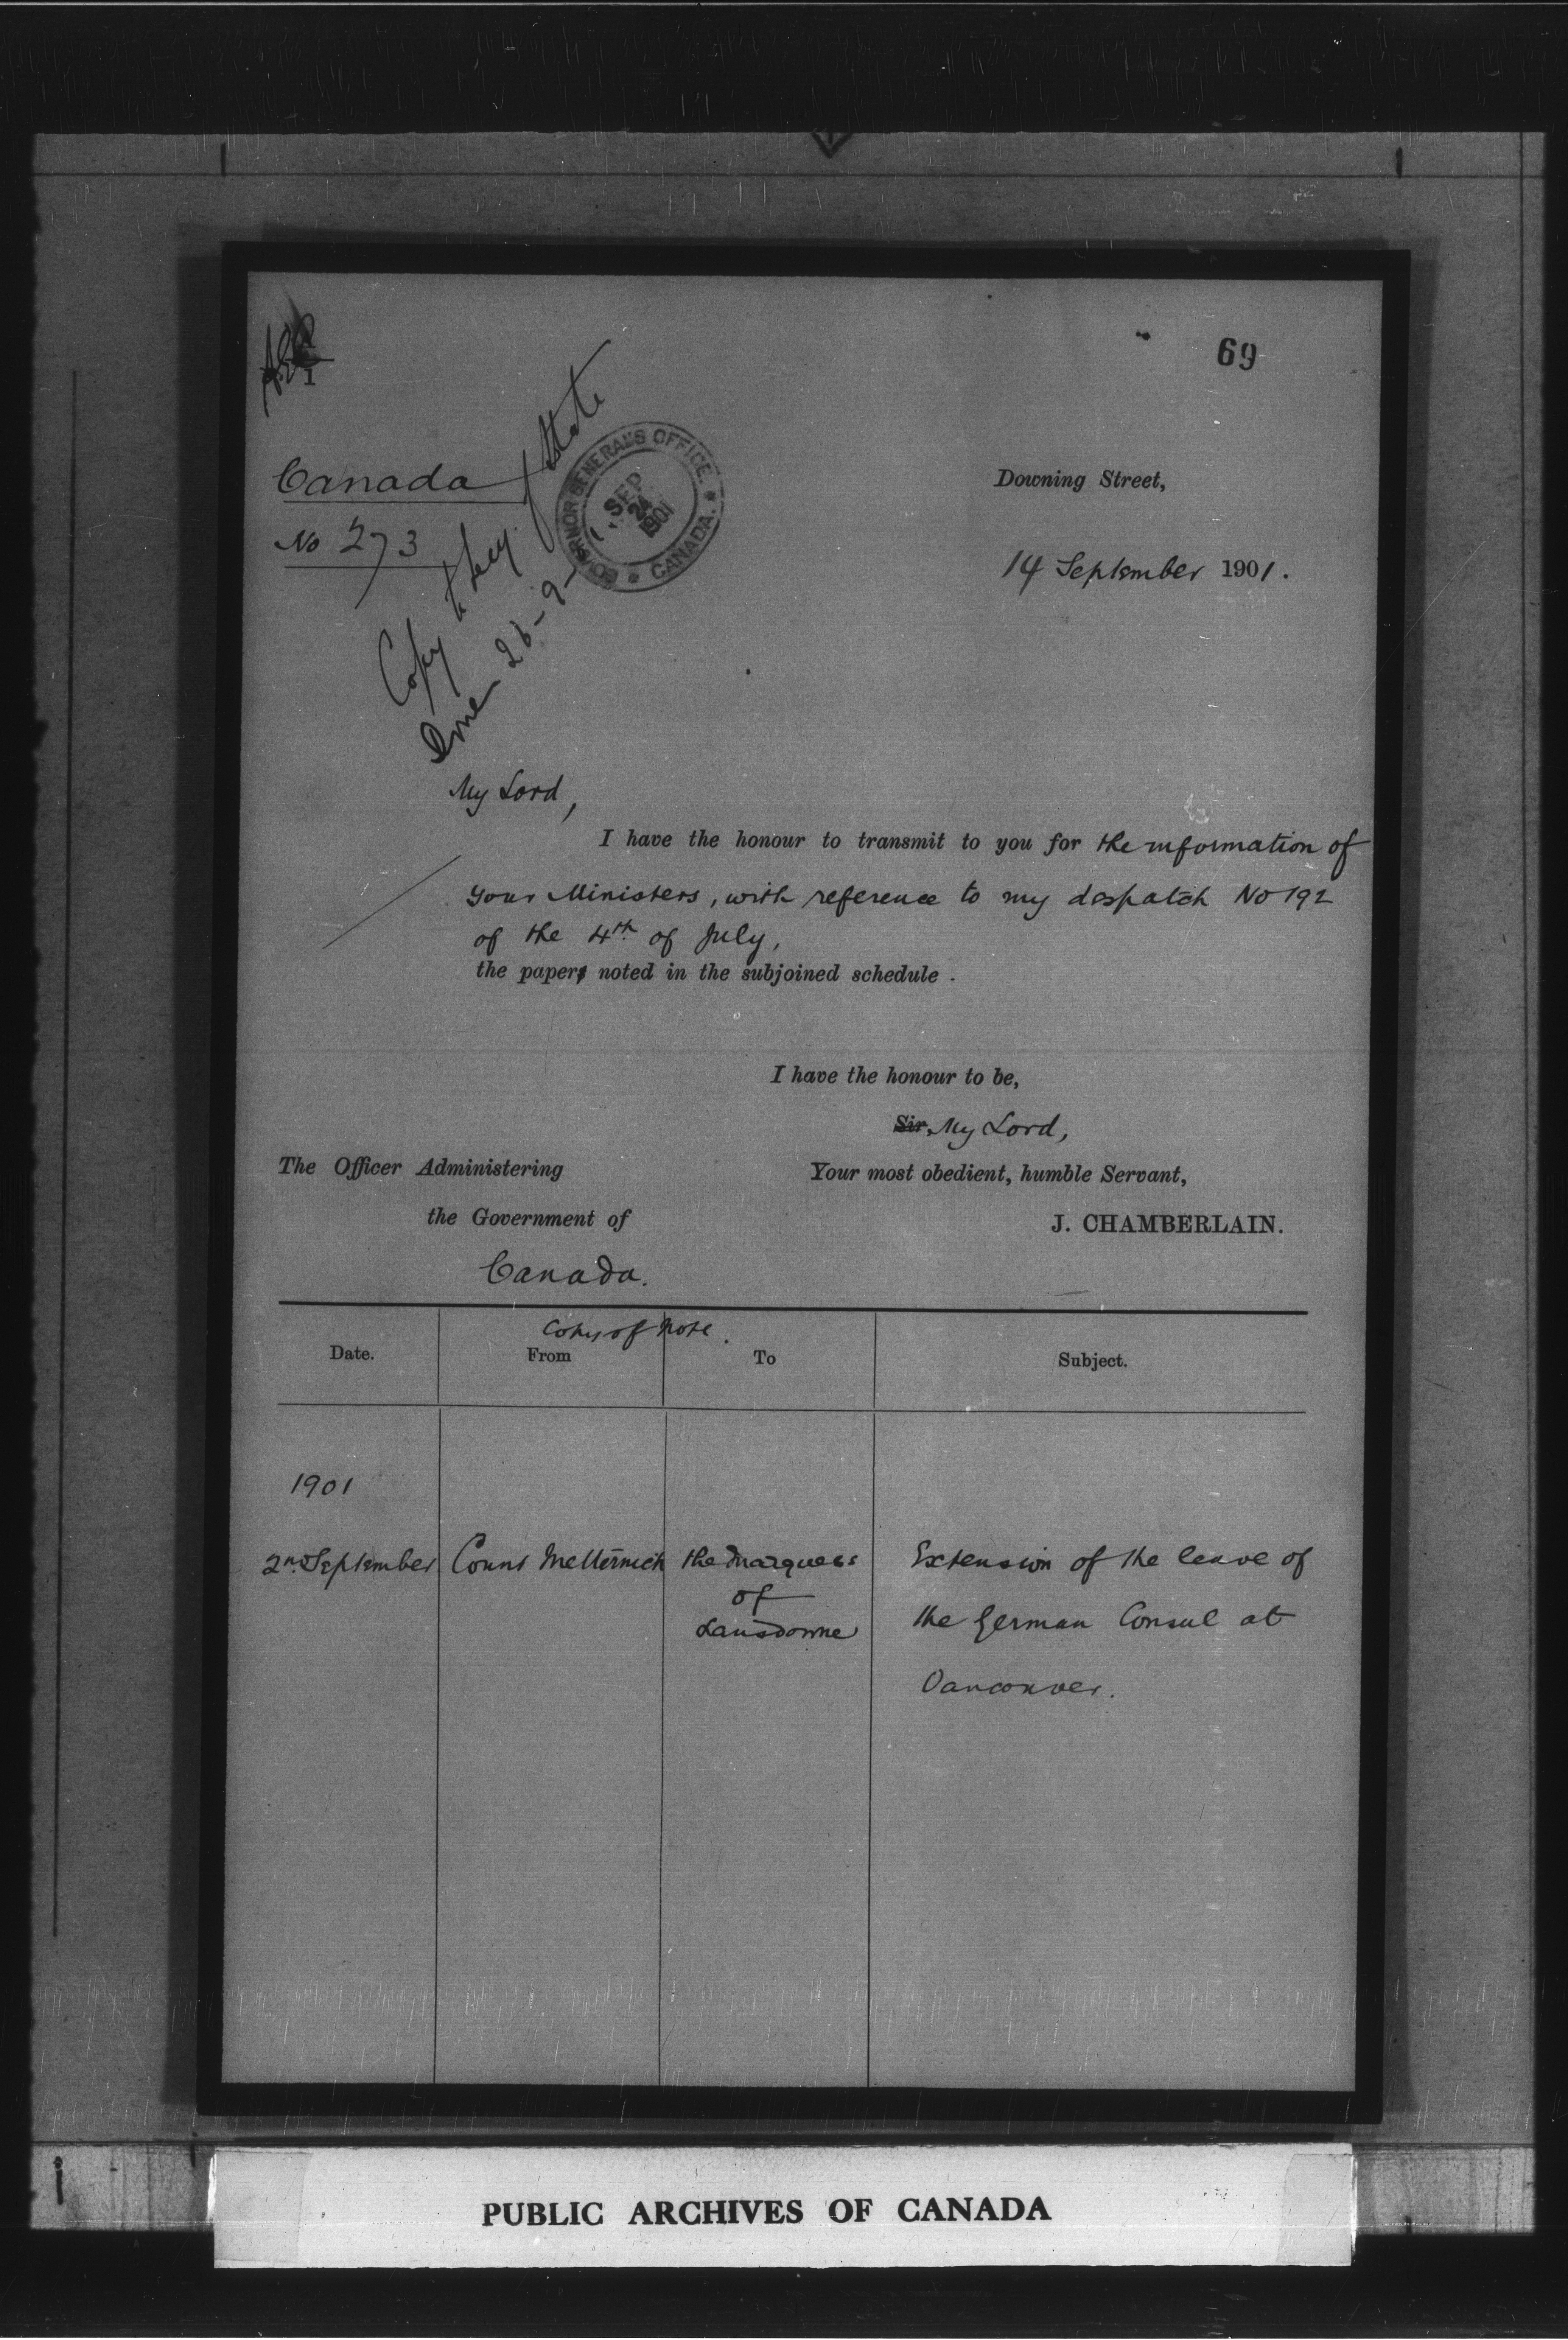 69
Canada
No 273
GOVERNOR GENERAL'S OFFICE.
SEP
24
1901
CANADA.
Copy to Secy. of State
26-9-
Downing Street,
14 September 1901.
My Lord,
I have the honour to transmit to you for the information of
Your Ministers, with reference to my despatch No 192
of the 4th. of July,
the papers noted in the subjoined schedule.
I have the honour to be,
Sir, My Lord,
Your most obedient, humble Servant,
J. CHAMBERLAIN.
The Officer Administering
the Government of
Canada.
Copy of Note.
Date. From To Subject.
1901
2nd. September Count Metternich the Marquess
of
Lansdowne
Extension of the leave of
the German Consul at
Vancouver.
PUBLIC ARCHIVES OF CANADA